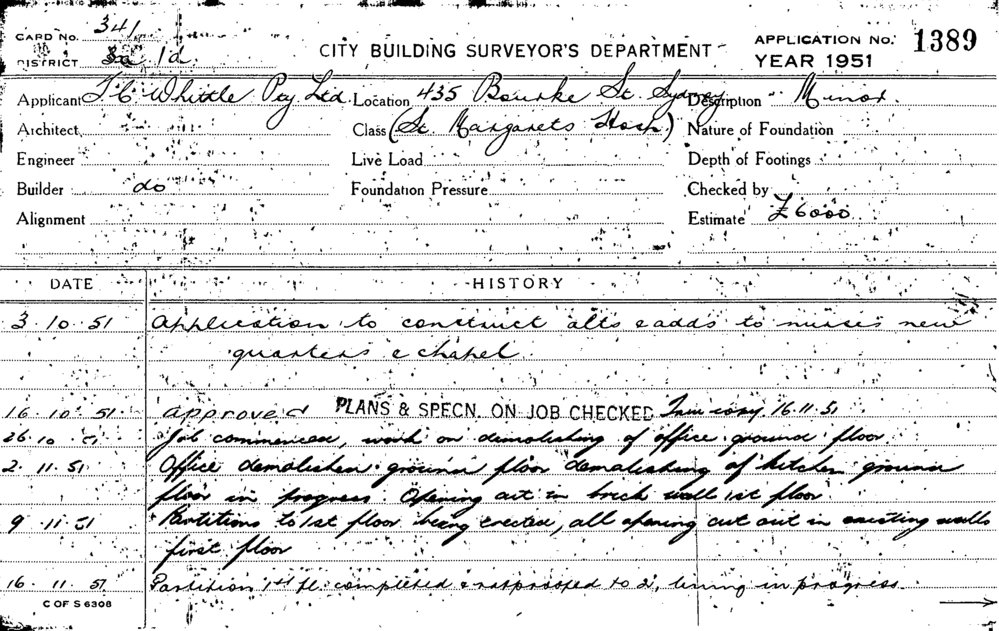 CARD No. 341
CITY BUILDING SURVEYOR'S DEPARTMENT
APPLICATION No. 1389
DISTRICT 1d.
YEAR 1951
Applicant T C Whittle Pty Ltd. Location 435 Bourke St. Sydney Description Minor.
Architect Class (St. Margarets Hosp.) Nature of Foundation
Engineer Live Load Depth of Footings
Builder do Foundation Pressure Checked by
Alignment Estimate £6000
DATE HISTORY
3.10.51 Application to construct alts & adds to nurses new
quarters & chapel.
16.10.51 approved PLANS & SPECN. ON JOB CHECKED 16.11.51
26.10.51 Job commenced, work on demolishing of office ground floor.
2.11.51 Office demolished ground floor demolishing of kitchen ground
floor in progress. Opening out in brick wall 1st floor.
9.11.51 Partitions to 1st floor being erected, all opening cut out in existing walls
first floor
16.11.51 Partition 1st fl. completed & ratproofed to 2', lining in progress.
C OF S 6308